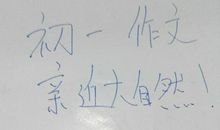 初一作文
亲近大自然！